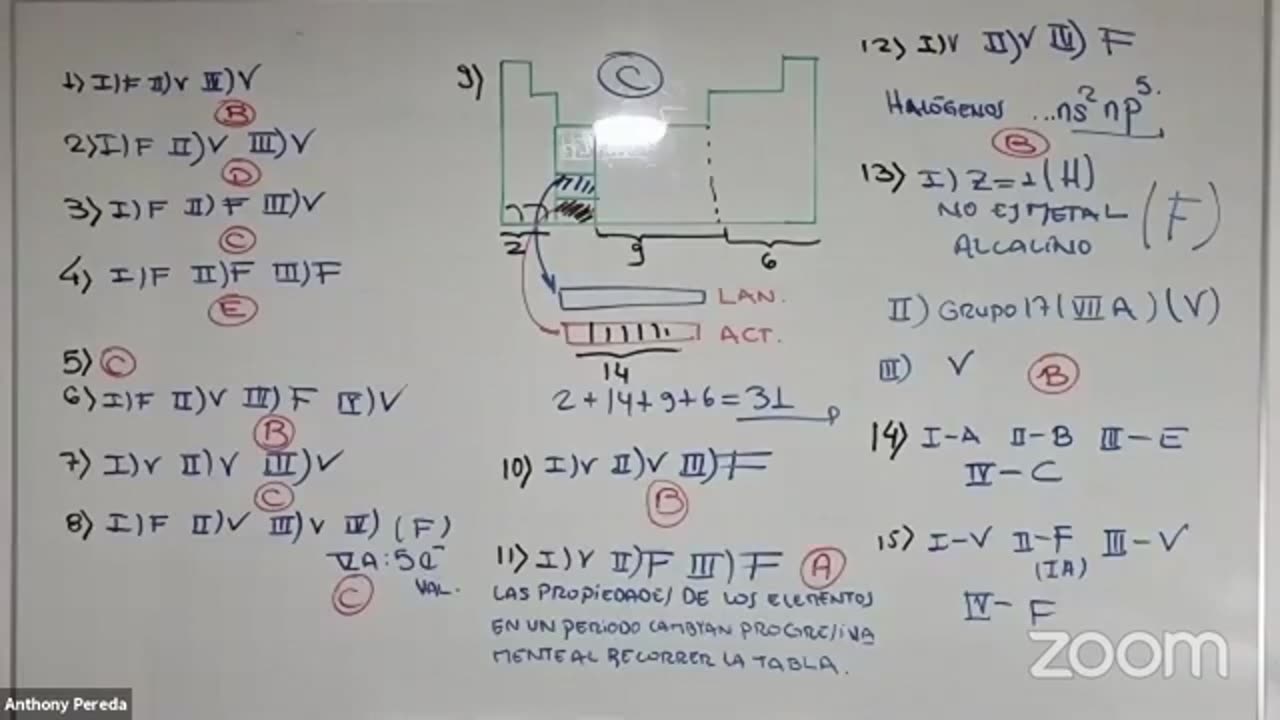 1) I)F II)V III)V
B
2) I)F II)V III)V
D
3) I)F II)F III)V
C
4) I)F II)F III)F
E
5) C
6) I)F II)V III)F IV)V
B
7) I)V II)V III)V
C
8) I)F II)V III)V IV) (F)
VA: 5e⁻
VAL.
C
9) C
2 9 6
LAN.
ACT.
14
2+14+9+6=31
10) I)V II)V III)F
B
11) I)V II)F III)F A
LAS PROPIEDADES DE LOS ELEMENTOS
EN UN PERIODO CAMBIAN PROGRESIVA
MENTE AL RECORRER LA TABLA.
12) I)V II)V III) F
HALÓGENOS ...ns² np⁵.
B
13) I) Z=1(H)
NO ES METAL (F)
ALCALINO
II) GRUPO 17 (VIIA) (V)
III) V B
14) I-A II-B III-E
IV-C
15) I-V II-F III-V
(IA)
IV- F
zoom
Anthony Pereda